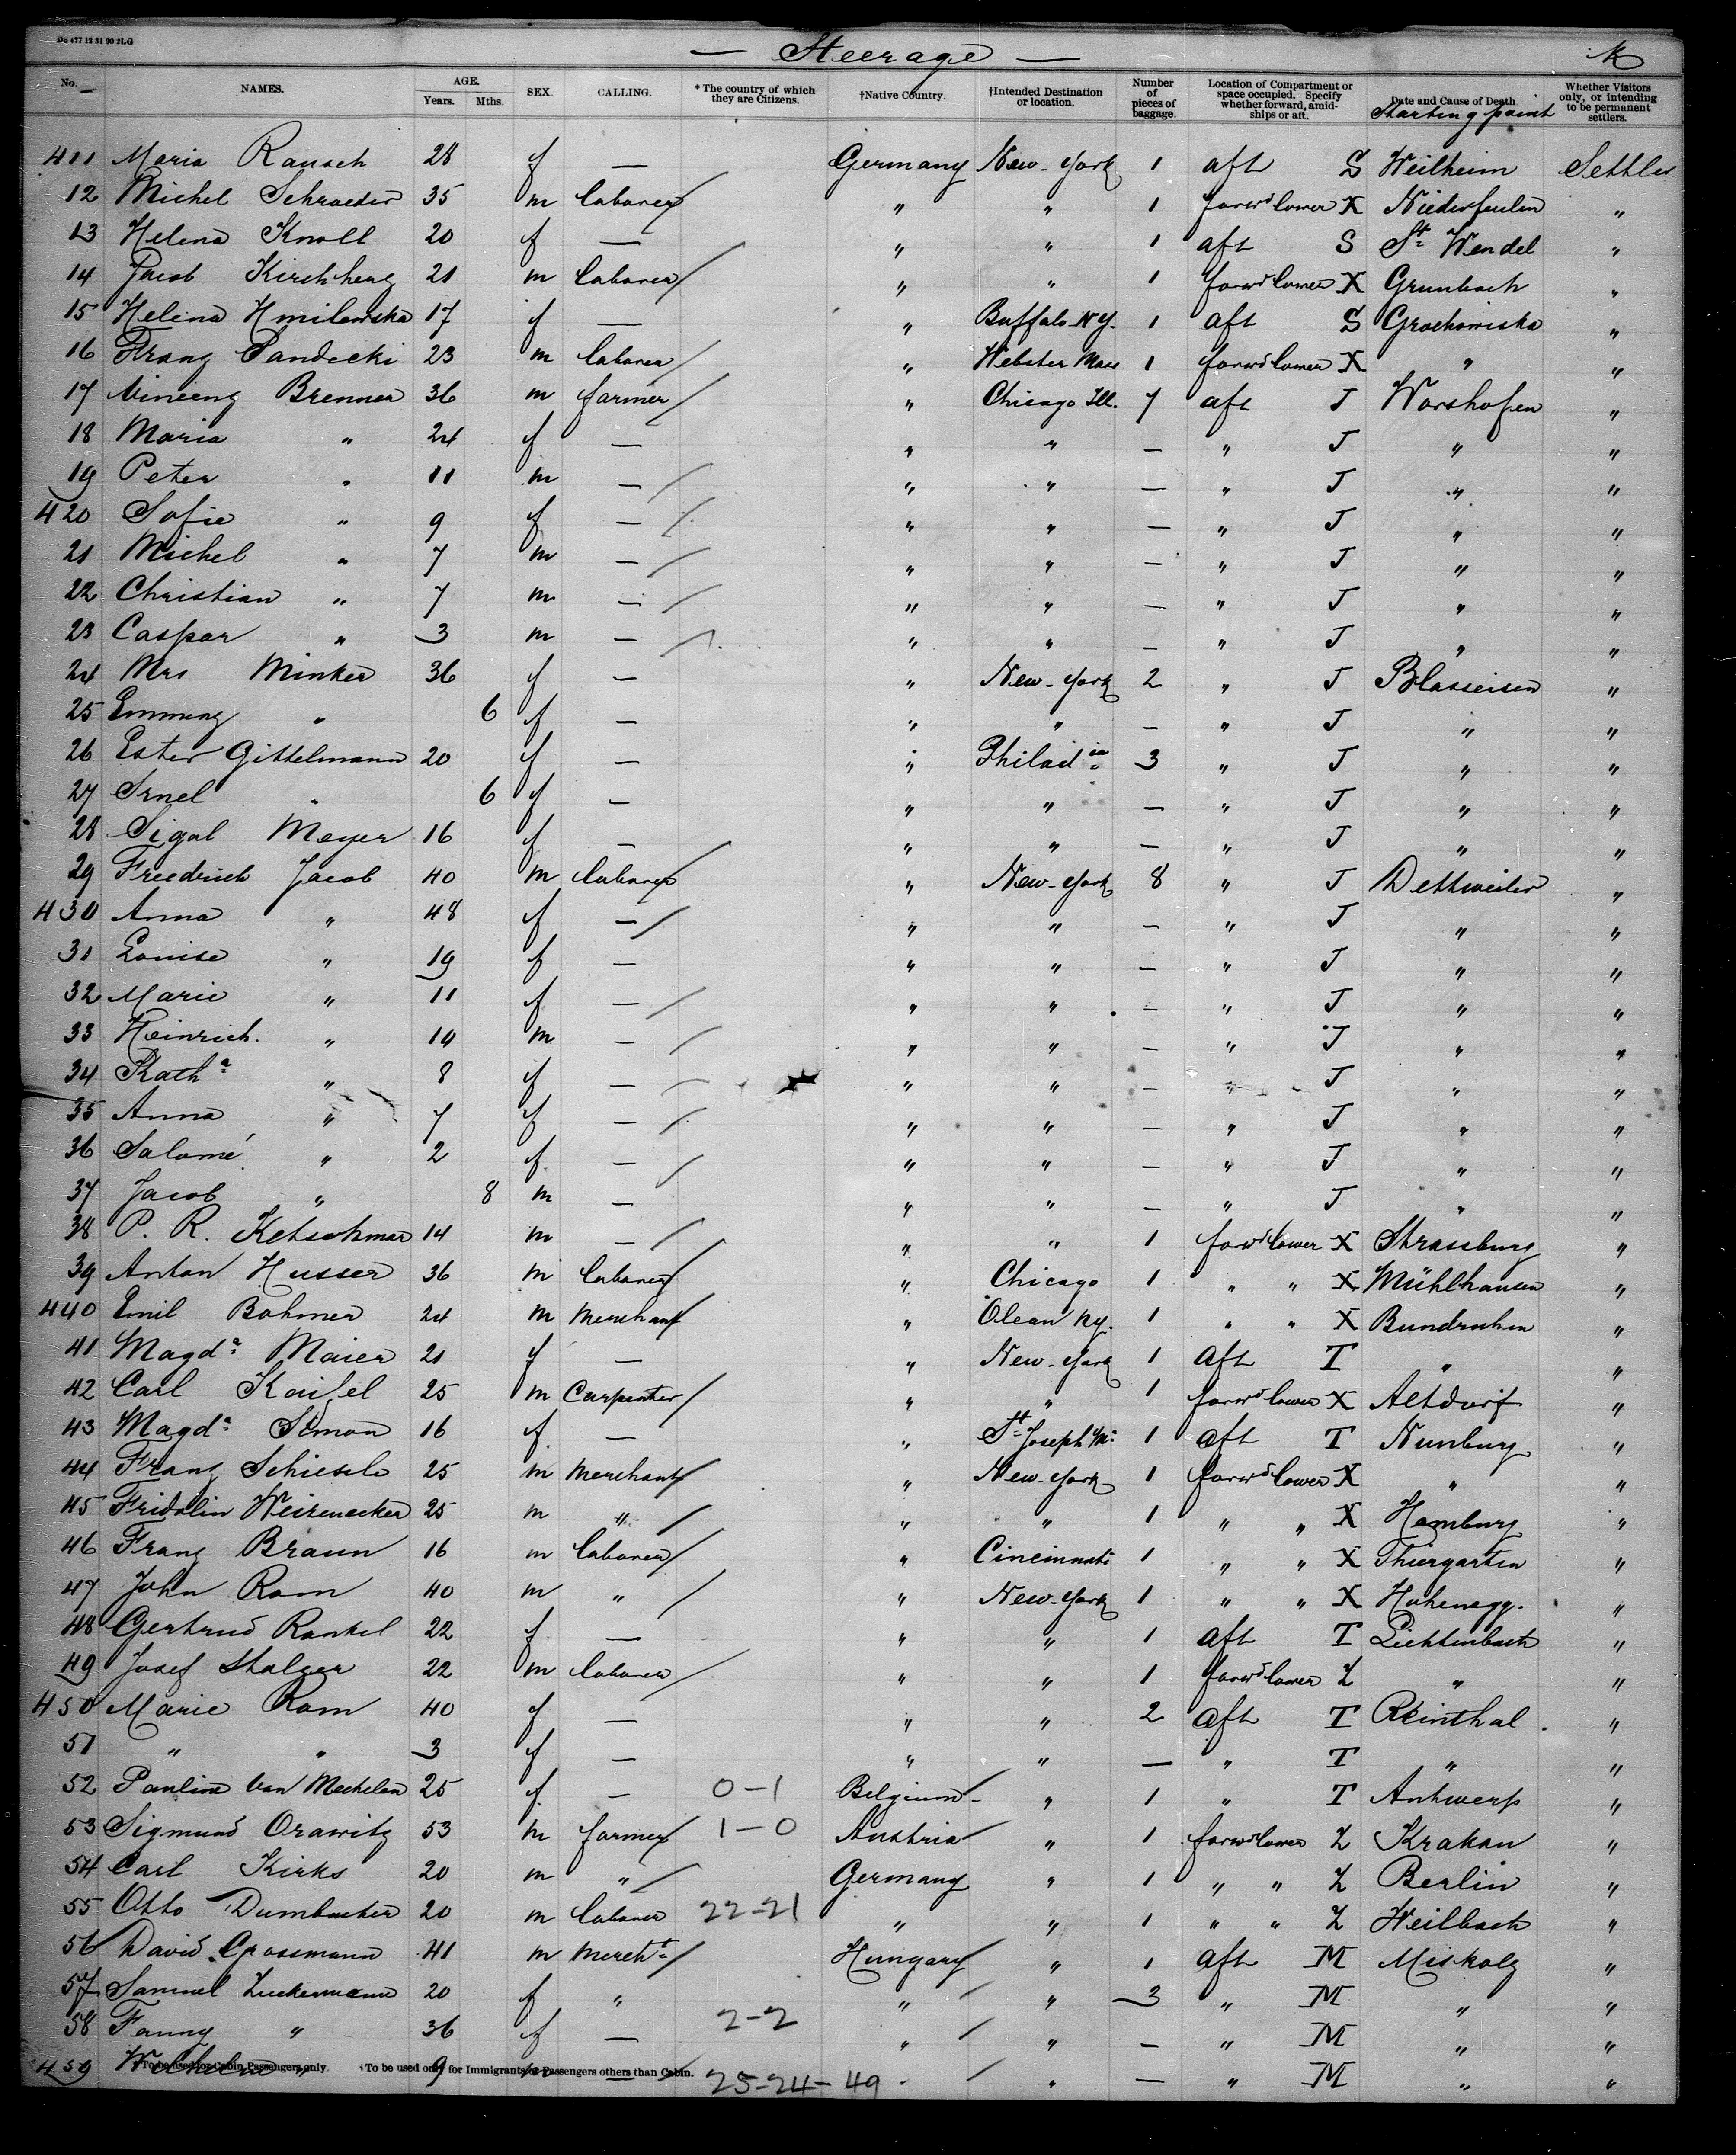 — Steerage —
No. NAMES. AGE. Years. Mths. SEX. CALLING. * The country of which they are Citizens. †Native Country. †Intended Destination or location. Number of pieces of baggage. Location of Compartment or space occupied. Specify whether forward, amidships or aft. Date and Cause of Death Starting point Whether Visitors only, or intending to be permanent settlers.
411 Maria Rausch 28 f — Germany New-York 1 aft S Weilheim Settler
12 Michel Schroeder 35 m laborer " " 1 forwd lower X Niederfeulen "
13 Helena Knoll 20 f — " " 1 aft S St Wendel "
14 Jacob Kirchherg 21 m laborer " " 1 forwd lower X Grunbach "
15 Helena Hmilewska 17 f — " Buffalo N.Y. 1 aft S Grochowiska "
16 Franz Sandecki 23 m laborer " Webster Mass 1 forwd lower X " "
17 Vincenz Brenner 36 m farmer " Chicago Ill. 7 aft J Worshofen "
18 Maria " 24 f — " " — " J " "
19 Peter " 11 m — " " — " J " "
420 Sofie " 9 f — " " — " J " "
21 Michel " 7 m — " " — " J " "
22 Christian " 7 m — " " — " J " "
23 Caspar " 3 m — " " — " J " "
24 Mrs Minker 36 f — " New-York 2 " J Blasseisen "
25 Emmeng " 6 f — " " — " J " "
26 Ester Gittelmann 20 f — " Philadia 3 " J " "
27 Srnel " 6 f — " " — " J " "
28 Sigal Meyer 16 f — " " — " J " "
29 Freedrich Jacob 40 m laborer " New-York 8 " J Dettweiler "
430 Anna " 48 f — " " — " J " "
31 Louise " 19 f — " " — " J " "
32 Marie " 11 f — " " — " J " "
33 Heinrich. " 10 m — " " — " J " "
34 Katha " 8 f — " " — " J " "
35 Anna " 7 f — " " — " J " "
36 Salomé " 2 f — " " — " J " "
37 Jacob " 8 m — " " — " J " "
38 P. R. Ketschmar 14 m — " " 1 forwd lower X Strassburg "
39 Anton Husser 36 m laborer " Chicago 1 " " X Mühlhausen "
440 Emil Bohmer 24 m Merchant " Olean N.y. 1 " " X Bundruhen "
41 Magda Maier 21 f — " New-York 1 aft T " "
42 Carl Kaifel 25 m Carpenter " " 1 forwd lower X Altdorf "
43 Magda Simon 16 f — " St Joseph Mi 1 aft T Nunburg "
44 Franz Schiesele 25 m Merchant " New-York 1 forwd lower X " "
45 Fridolin Weizenecker 25 m " " " 1 " " X Hamburg "
46 Franz Braun 16 m laborer " Cincinnati 1 " " X Thiergarten "
47 John Rom 40 m " " New-York 1 " " X Hohenegg. "
48 Gertrud Runkel 22 f — " " 1 aft T Lichtenbach "
49 Josef Stalzer 22 m laborer " " 1 forwd lower Z " "
450 Marie Rom 40 f — " " 2 aft T Reinthal "
51 " " 3 f — " " — " T " "
52 Pauline Van Mechelen 25 f — 0-1 Belgium " 1 " T Antwerp "
53 Sigmund Orawitz 53 m farmer 1-0 Austria " 1 forwd lower Z Krakau "
54 Carl Kirks 20 m " Germany " 1 " " Z Berlin "
55 Otto Dumbacher 20 m laborer 22-21 " " 1 " " Z Heilbach "
56 David Grossmann 41 m Mercht Hungary " 1 aft M Miskolz "
57 Samuel Zuckermann 20 f " " " 3 " M " "
58 Fanny " 36 f — 2-2 " " — " M " "
459 Wilhelm " 9 m — " " — " M " "
To be used for Cabin Passengers only. †To be used only for Immigrants or Passengers others than Cabin. 25-24-49